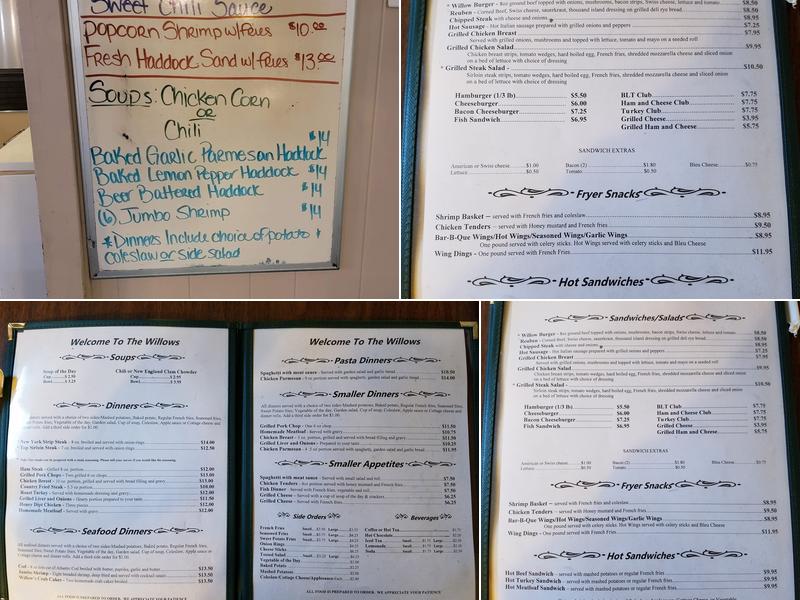 Sweet Chili Sauce
Popcorn Shrimp w/ fries $10.00
Fresh Haddock Sand w/ fries $13.00
Soups: Chicken Corn
OR
Chili
Baked Garlic Parmesan Haddock $14
Baked Lemon Pepper Haddock $14
Beer Battered Haddock $14
(6) Jumbo Shrimp $14
*Dinners Include choice of potato +
coleslaw or side salad
* Willow Burger - 8oz ground beef topped with onions, mushrooms, bacon strips, Swiss cheese, lettuce and tomato $8.50
Reuben - Corned Beef, Swiss cheese, sauerkraut, thousand island dressing on grilled deli rye bread $8.50
Chipped Steak with cheese and onions $8.95
Hot Sausage - Hot Italian sausage prepared with grilled onions and peppers $7.25
Grilled Chicken Breast $7.95
Served with grilled onions, mushrooms and topped with lettuce, tomato and mayo on a seeded roll
Grilled Chicken Salad $9.95
Chicken breast strips, tomato wedges, hard boiled egg, French fries, shredded mozzarella cheese and sliced onion
on a bed of lettuce with choice of dressing
* Grilled Steak Salad - $10.50
Sirloin steak strips, tomato wedges, hard boiled egg, French fries, shredded mozzarella cheese and sliced onion
on a bed of lettuce with choice of dressing
Hamburger (1/3 lb) $5.50
Cheeseburger $6.00
Bacon Cheeseburger $7.25
Fish Sandwich $6.95
BLT Club $7.75
Ham and Cheese Club $7.75
Turkey Club $7.75
Grilled Cheese $3.95
Grilled Ham and Cheese $5.75
SANDWICH EXTRAS
American or Swiss cheese $1.00 Bacon (2) $1.80 Bleu Cheese $0.75
Lettuce $0.50 Tomato $0.50
Fryer Snacks
Shrimp Basket – served with French fries and coleslaw $8.95
Chicken Tenders - served with Honey mustard and French fries $9.50
Bar-B-Que Wings/Hot Wings/Seasoned Wings/Garlic Wings $8.95
One pound served with celery sticks. Hot Wings served with celery sticks and Bleu Cheese
Wing Dings - One pound served with French Fries $11.95
Hot Sandwiches
Welcome To The Willows
Soups
Soup of the Day
Cup $2.50
Bowl $3.25
Chili or New England Clam Chowder
Cup $2.95
Bowl $3.95
Dinners
New York Strip Steak - 8 oz. broiled and served with onion rings $14.00
* Top Sirloin Steak - 7 oz. broiled and served with onion rings $12.50
Ham Steak - Grilled 8 oz. portion $12.00
Grilled Pork Chops - Two grilled 6 oz chops $13.00
Chicken Breast - 10 oz. portion, grilled and served with bread filling and gravy $13.00
Country Fried Steak - $10.00
Roast Turkey - Served with homemade dressing and gravy $12.00
Grilled Liver and Onions - Hearty portion prepared to your taste $11.50
Honey Dipt Chicken - Three pieces $12.00
Homemade Meatloaf - Served with gravy $12.00
Seafood Dinners
Cod - 8 oz cut of Atlantic Cod broiled with butter, paprika, garlic and butter $13.50
Jumbo Shrimp - Eight breaded shrimp, deep fried and served with cocktail sauce $13.50
Willow's Crab Cakes - Two homemade crab cakes broiled $13.50
ALL FOOD IS PREPARED TO ORDER. WE APPRECIATE YOUR PATIENCE
Welcome To The Willows
Pasta Dinners
Spaghetti with meat sauce - Served with garden salad and garlic bread $10.50
Chicken Parmesan - 8 oz portion served with spaghetti, garden salad and garlic bread $14.00
Smaller Dinners
Grilled Pork Chop - One 6 oz chop $11.50
Homemade Meatloaf - Served with gravy $10.75
Chicken Breast - 5 oz. portion, grilled and served with bread filling and gravy $11.50
Grilled Liver and Onions - Prepared to your taste $10.25
Chicken Parmesan - 4 oz portion served with spaghetti, garden salad and garlic bread $11.95
Smaller Appetites
Spaghetti with meat sauce - Served with a small salad and roll $7.50
Chicken Tenders - Served with honey mustard and French fries $7.50
Fish Dinner - Served with French fries, vegetable and roll $7.50
Grilled Cheese - Served with a cup of soup of the day & crackers $6.25
Grilled Cheese - Served with French fries $6.25
Side Orders
Beverages
French Fries
Seasoned Fries
Sweet Potato Fries
Onion Rings
Cheese Sticks
Tossed Salad
Vegetable of the Day
Baked Potato
Mashed Potatoes
Coleslaw/Cottage Cheese/Applesauce
Coffee or Hot Tea
Hot Chocolate
Iced Tea
Lemonade
ALL FOOD IS PREPARED TO ORDER. WE APPRECIATE YOUR PATIENCE
Sandwiches/Salads
* Willow Burger - 8oz ground beef topped with onions, mushrooms, bacon strips, Swiss cheese, lettuce and tomato $8.50
Reuben - Corned Beef, Swiss cheese, sauerkraut, thousand island dressing on grilled deli rye bread $8.50
Chipped Steak with cheese and onions $8.95
Hot Sausage - Hot Italian sausage prepared with grilled onions and peppers $7.25
Grilled Chicken Breast $7.95
Served with grilled onions, mushrooms and topped with lettuce, tomato and mayo on a seeded roll
Grilled Chicken Salad $9.95
Chicken breast strips, tomato wedges, hard boiled egg, French fries, shredded mozzarella cheese and sliced onion
on a bed of lettuce with choice of dressing
* Grilled Steak Salad - $10.50
Sirloin steak strips, tomato wedges, hard boiled egg, French fries, shredded mozzarella cheese and sliced onion
on a bed of lettuce with choice of dressing
Hamburger (1/3 lb) $5.50
Cheeseburger $6.00
Bacon Cheeseburger $7.25
Fish Sandwich $6.95
BLT Club $7.75
Ham and Cheese Club $7.75
Turkey Club $7.75
Grilled Cheese $3.95
Grilled Ham and Cheese $5.75
SANDWICH EXTRAS
American or Swiss cheese $1.00 Bacon (2) $1.80 Bleu Cheese $0.75
Lettuce $0.50 Tomato $0.50
Fryer Snacks
Shrimp Basket – served with French fries and coleslaw $8.95
Chicken Tenders - served with Honey mustard and French fries $9.50
Bar-B-Que Wings/Hot Wings/Seasoned Wings/Garlic Wings $8.95
One pound served with celery sticks. Hot Wings served with celery sticks and Bleu Cheese
Wing Dings - One pound served with French Fries $11.95
Hot Sandwiches
Hot Beef Sandwich - served with mashed potatoes or regular French fries $8.95
Hot Turkey Sandwich - served with mashed potatoes or regular French fries $8.95
Hot Meatloaf Sandwich - served with mashed potatoes or regular French fries $8.95